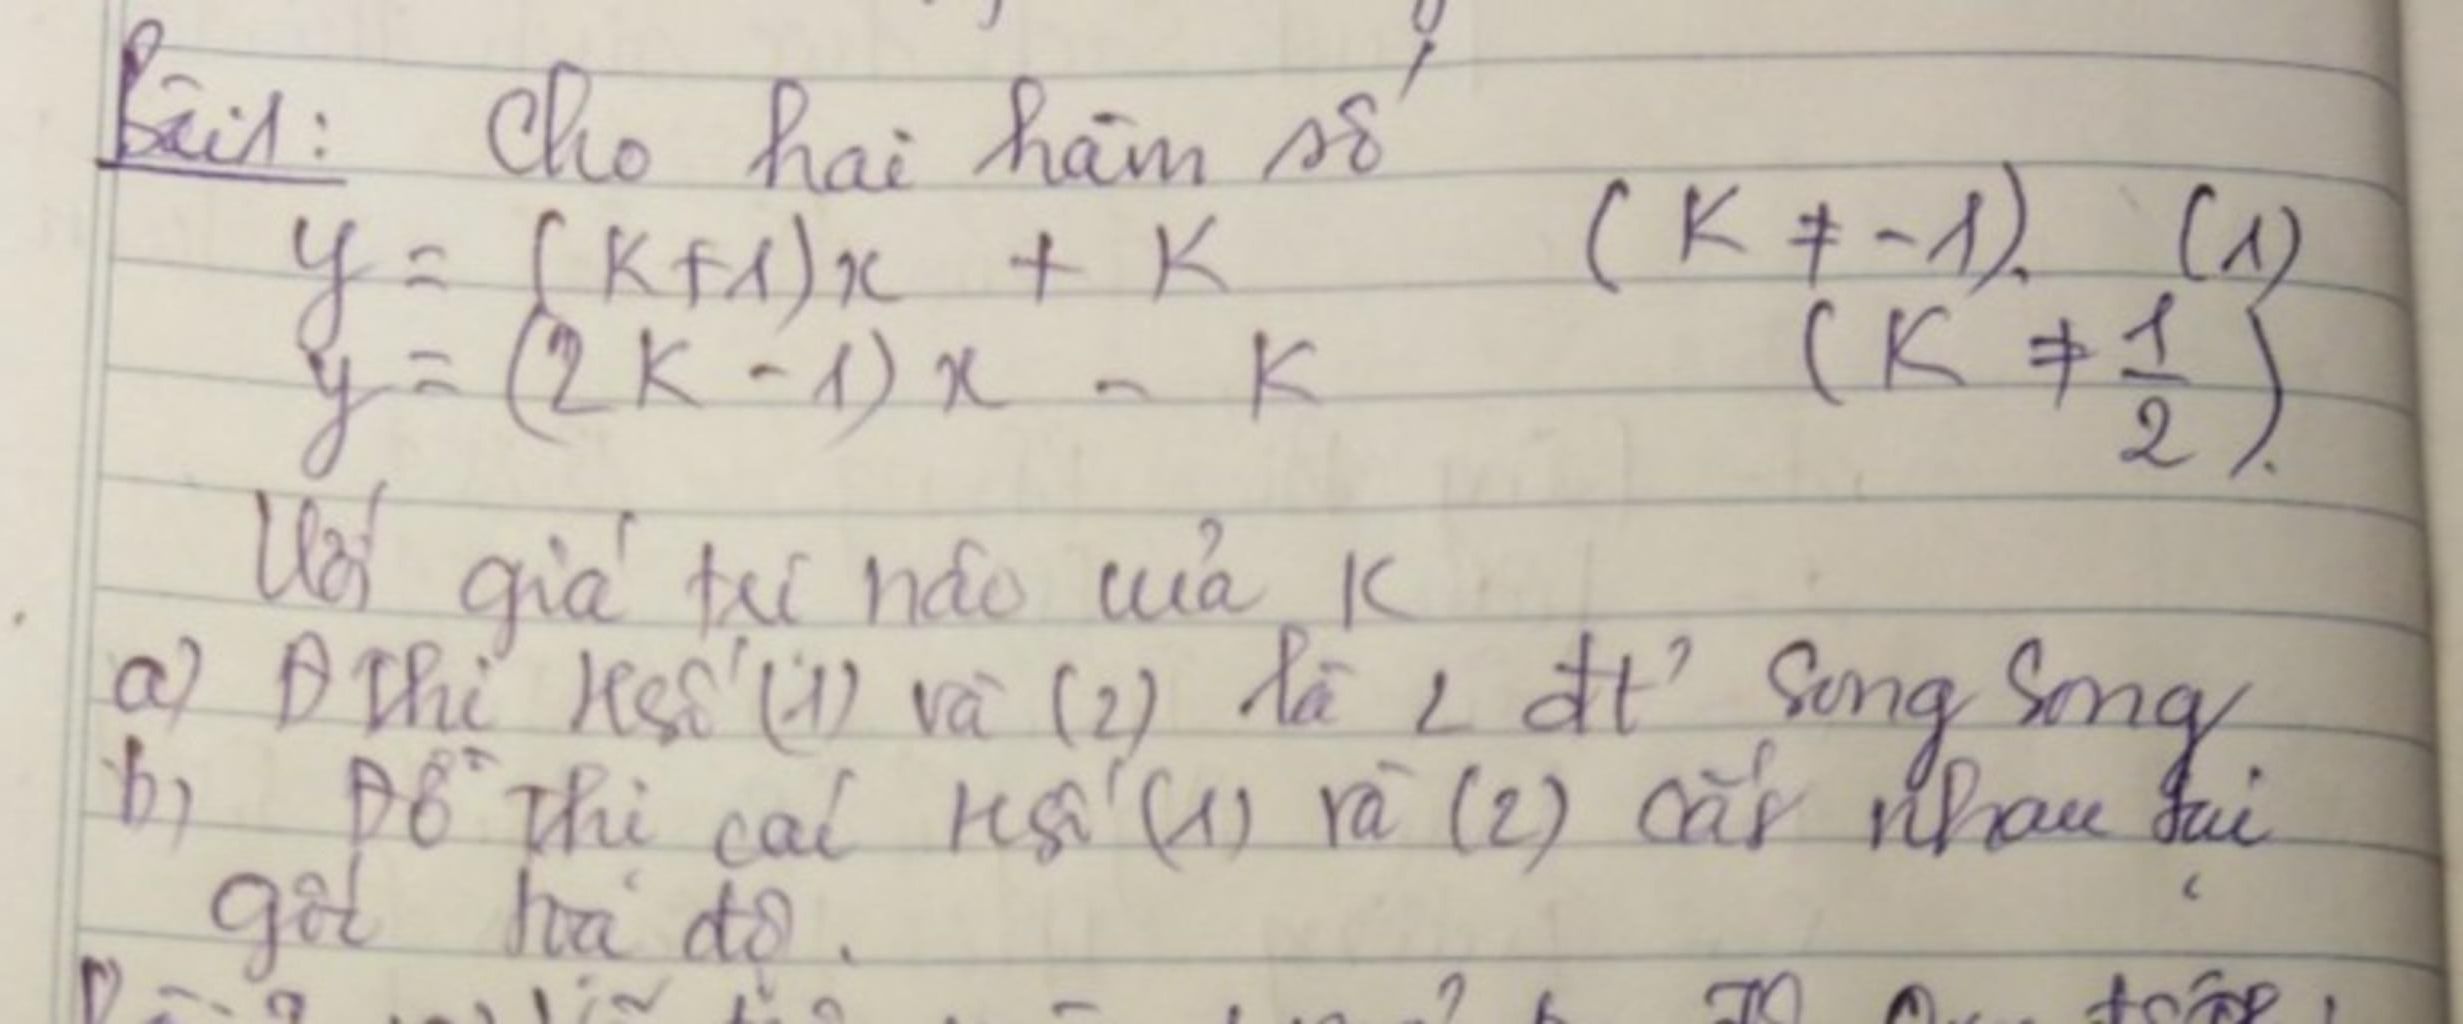 Bài 1: Cho hai hàm số
y = (K+1)x + K (K ≠ -1). (1)
y = (2K - 1)x - K (K ≠ 1/2).
Với giá trị nào của K
a) Đ thị Hsố (1) và (2) là 2 đt' Song Song
b) Đồ thị các Hsố (1) và (2) cắt nhau tại
gốc toạ độ.